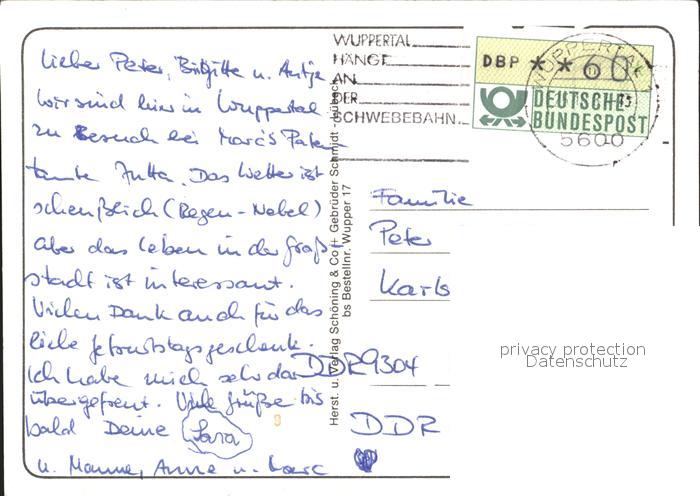 Lieber Peter, Birgitte u. Antje
wir sind hier in Wuppertal
zu Besuch bei Marc's Paten
tante Jutta. Das Wetter ist
scheußlich (Regen-Nebel)
aber das Leben in der Groß-
stadt ist interessant.
Vielen Dank auch für das
liebe Geburtstagsgeschenk.
Ich habe mich sehr darüber
übergefreut. Viele Grüße bis
bald Deine Sara
u. Manne, Anne u. Marc
WUPPERTAL
HÄNGT
AN
DER
SCHWEBEBAHN
DBP **60
DEUTSCHE
BUNDESPOST
WUPPERTAL 1
5600
Herst. u. Verlag Schöning & Co + Gebrüder Schmidt · Lübeck
bs Bestellnr. Wupper 17
Familie
Peter
Karls
DDR 9304
DDR
9
privacy protection
Datenschutz